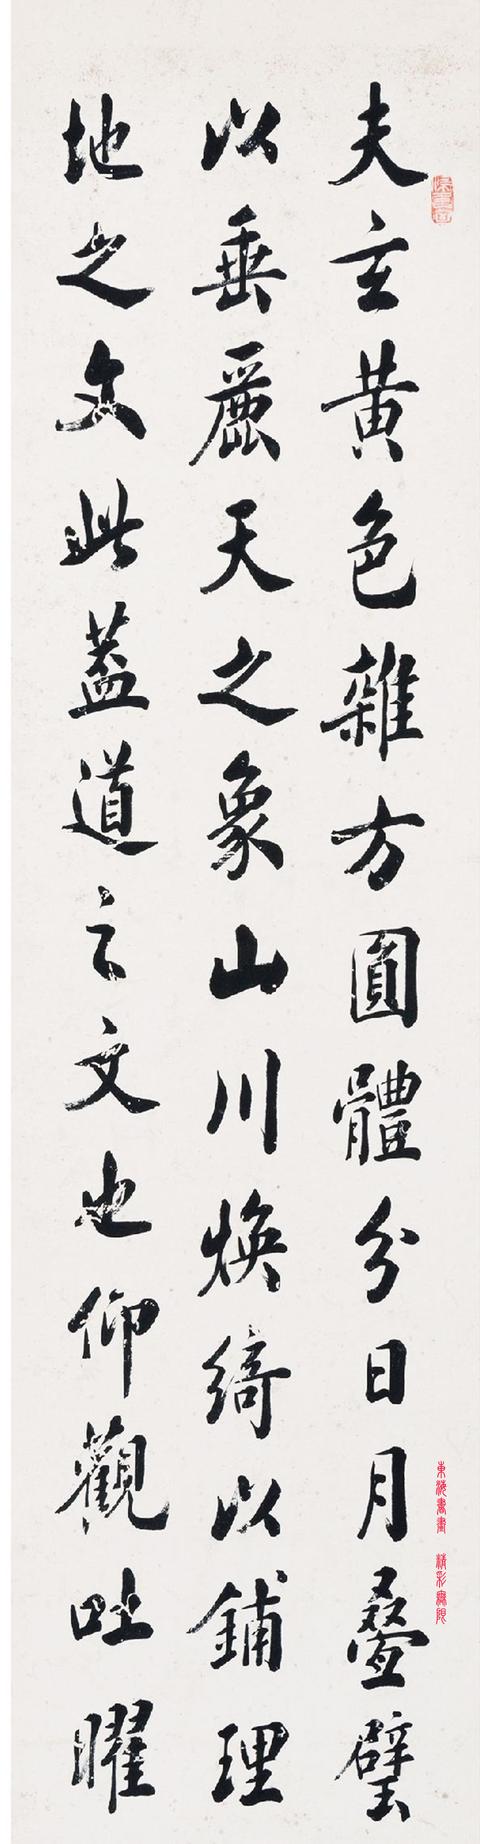 夫玄黃色雜方圓體分日月疊璧
以垂麗天之象山川煥綺以鋪理
地之文此蓋道之文也仰觀吐曜
東海書畫 精彩無限